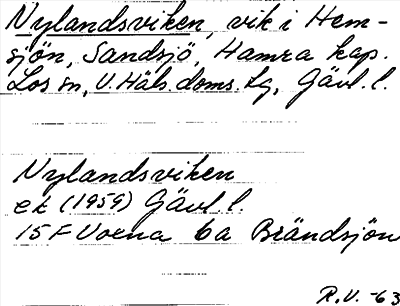 Nylandsviken, vik i Hem-
sjön, Sandsjö, Hamra kap.
Los sn, V. Häls. doms. tg, Gävl. l.
Nylandsviken
ek (1959) Gävl. l.
15 F Voxna 6a Brändsjön
R.V. -63